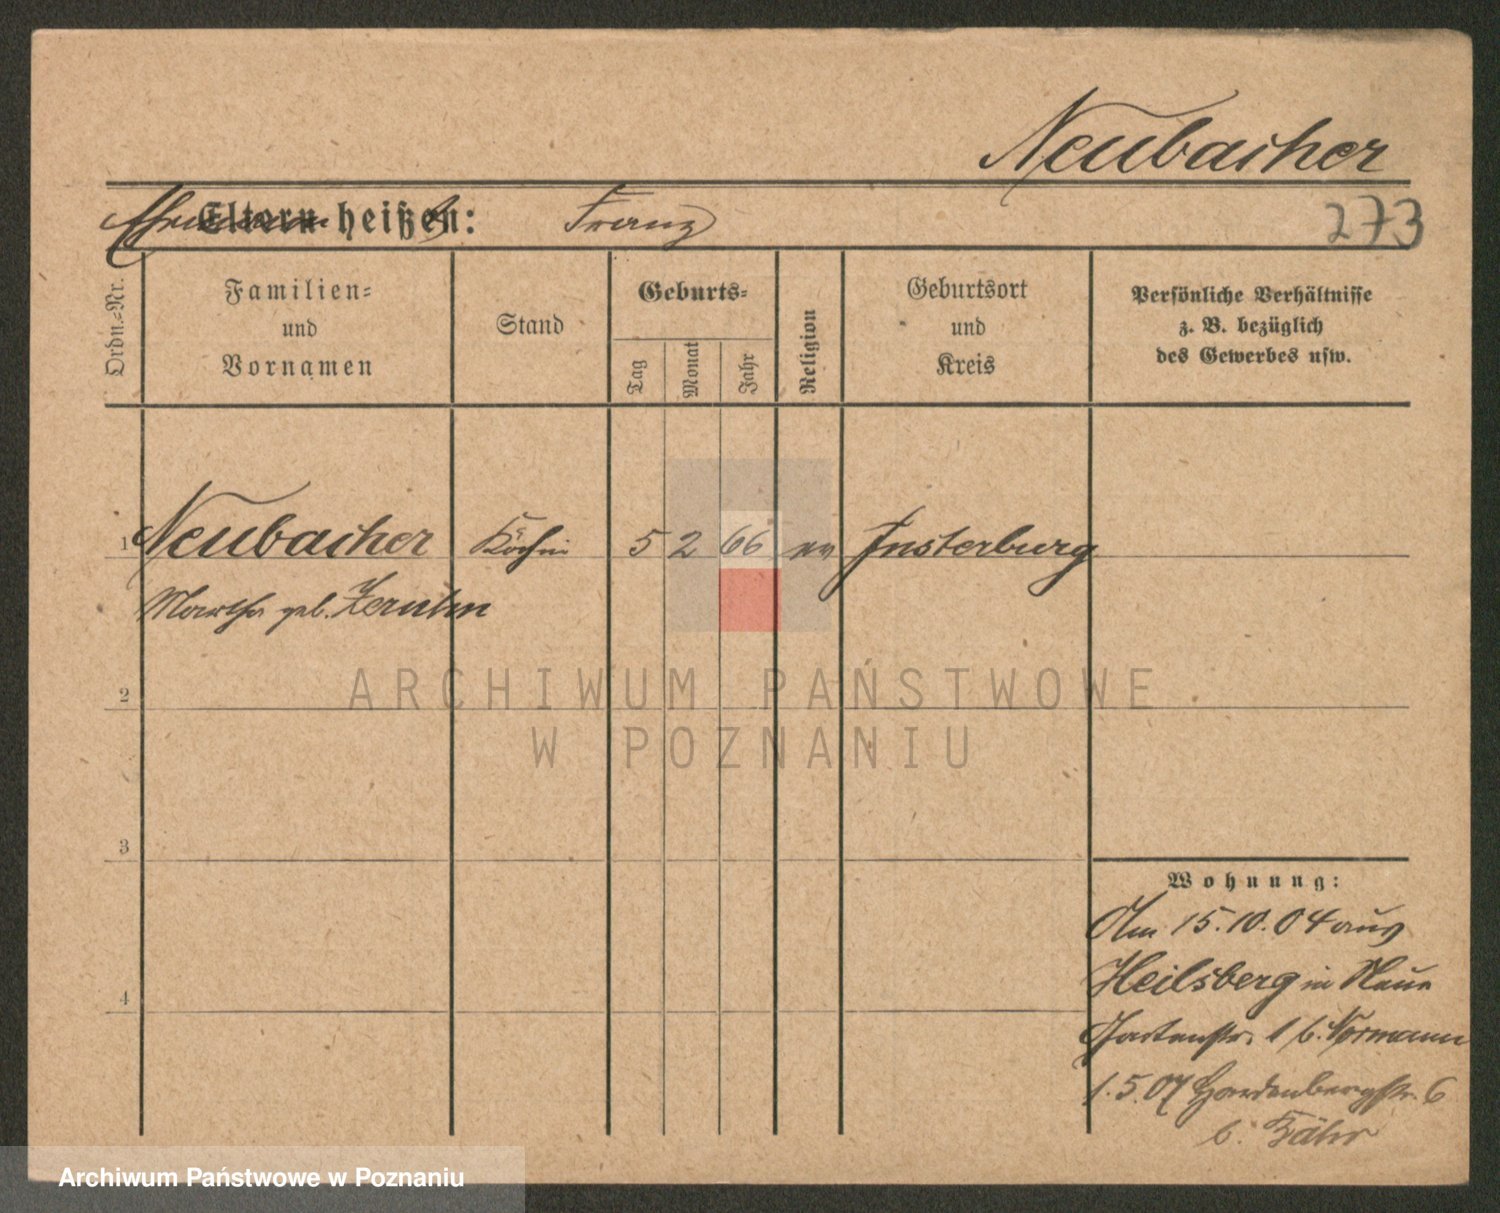 Neubacher
Eltern heißen: Franz
273
Ordn.-Nr.
Familien-
und
Vornamen
Stand
Geburts-
Tag
Monat
Jahr
Religion
Geburtsort
und
Kreis
Persönliche Verhältnisse
z. B. bezüglich
des Gewerbes usw.
1 Neubacher Köchin 5 2 66 ev Insterburg
Martha geb.
ARCHIWUM PAŃSTWOWE
W POZNANIU
2
3
4
Wohnung:
Am 15.10.04 aus
Heilsberg in Neue
Gartenstr. 1 b. Normann
1.5.07 Hardenbergstr. 6
b. Fähr
Archiwum Państwowe w Poznaniu